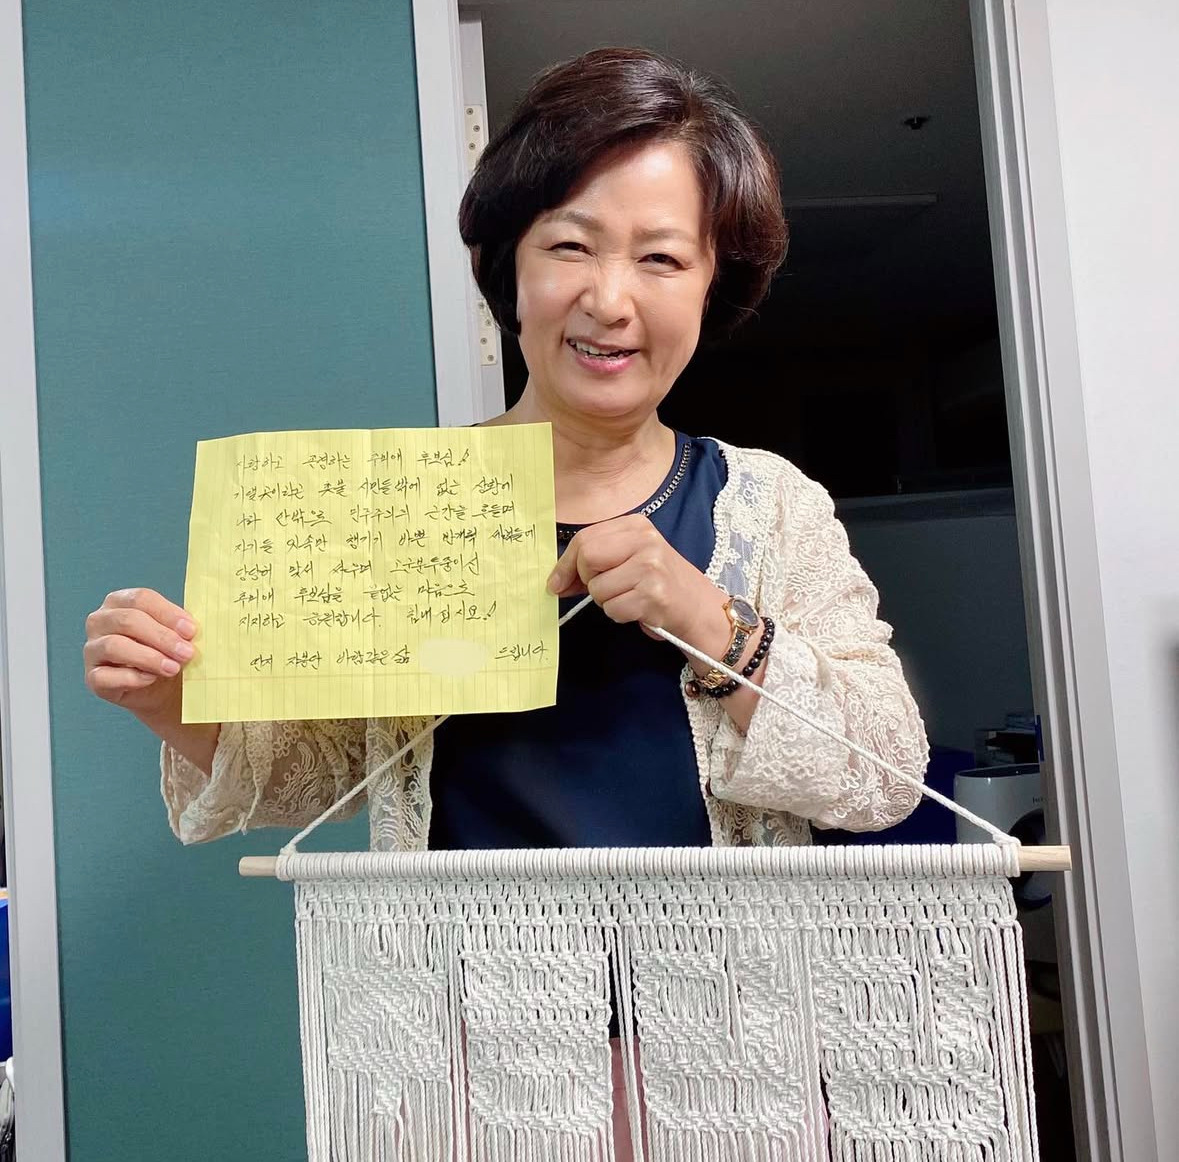 사랑하고 존경하는 추미애 후보님!!
기댈 곳이라곤 촛불 시민들밖에 없는 상황에
나라 안밖으로 민주주의의 근간을 흔들며
자기들 잇속만 챙기기 바쁜 반개혁 세력들에
당당히 맞서 싸우며 고군분투중이신
추미애 후보님을 끝없는 마음으로
지지하고 응원합니다. 힘내십시요!!
딴지 자봉단 바람같은삶 드립니다.